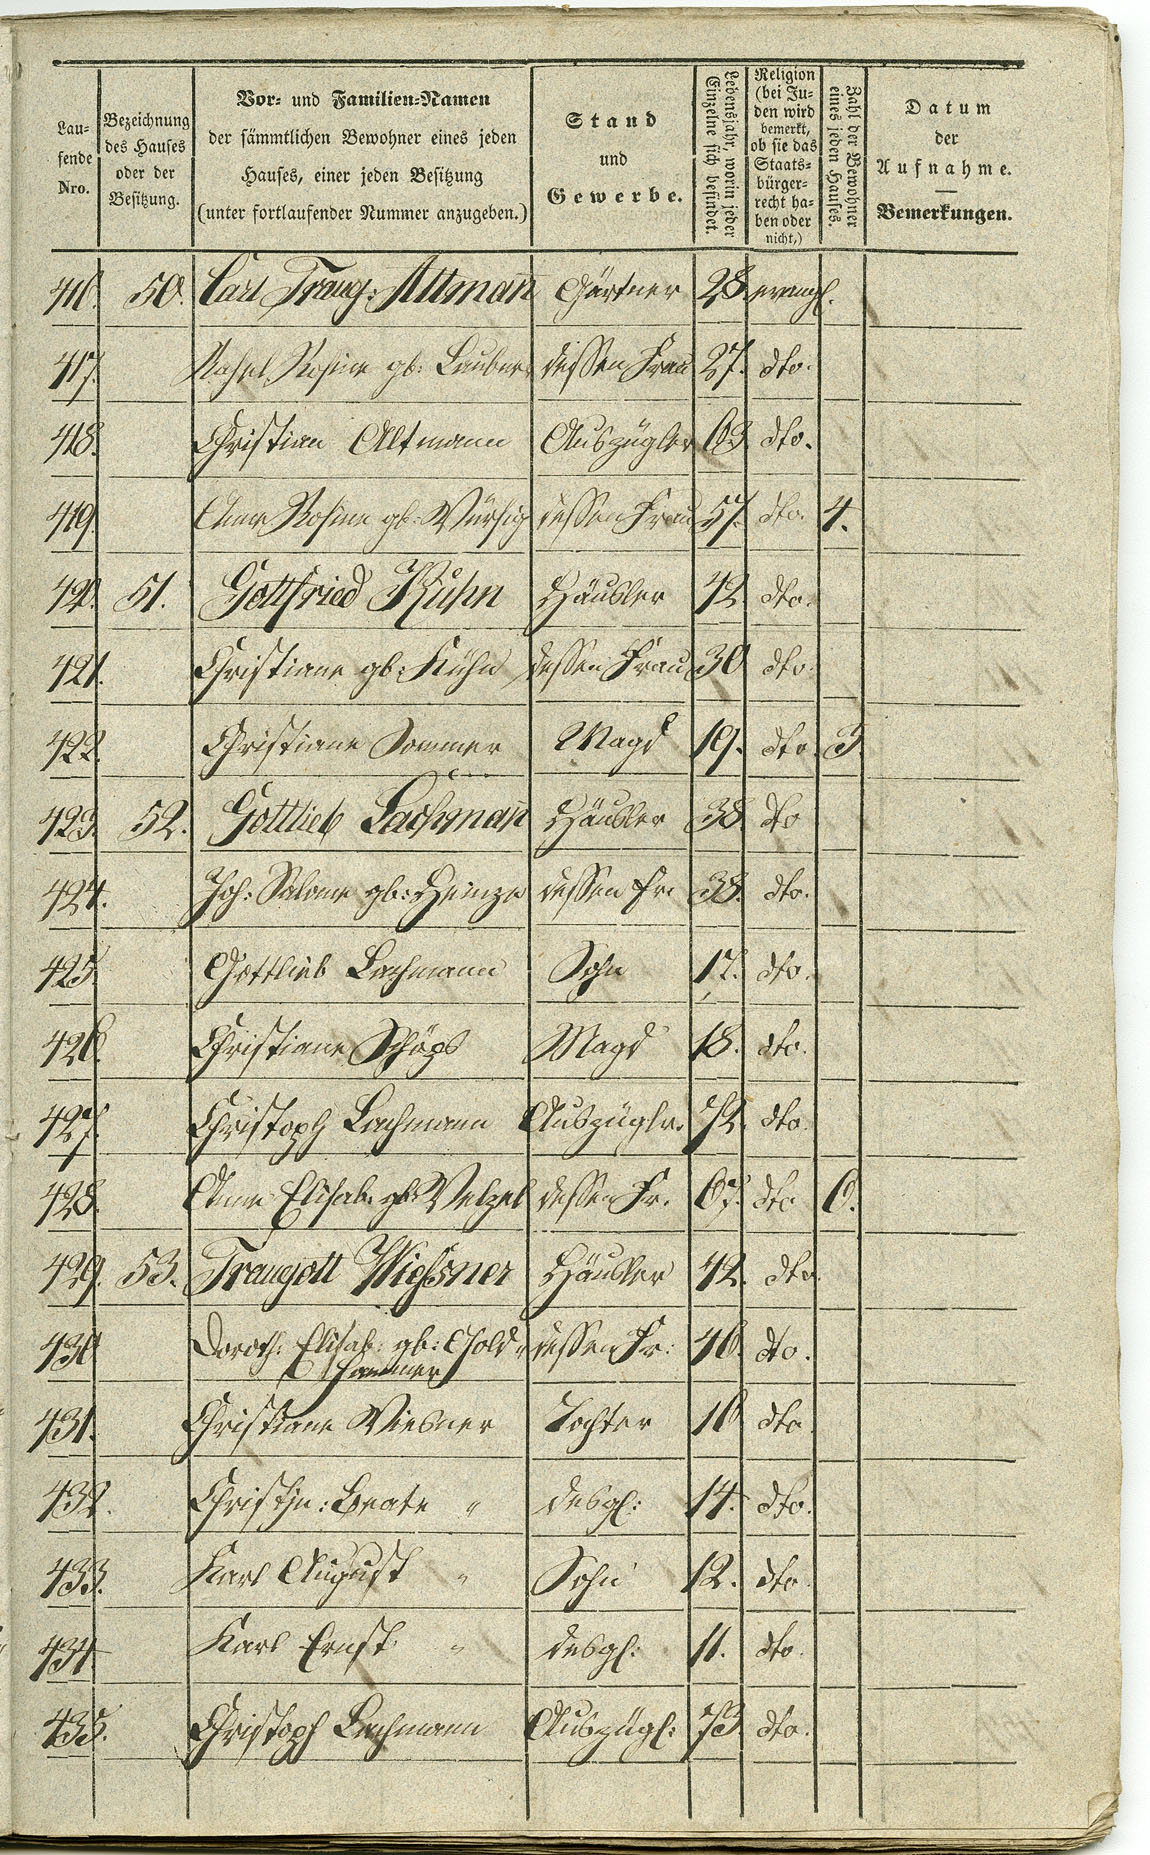 Lau-
fende
Nro.
Bezeichnung
des Hauses
oder der
Besitzung.
Vor- und Familien-Namen
der sämmtlichen Bewohner eines jeden
Hauses, einer jeden Besitzung
(unter fortlaufender Nummer anzugeben.)
Stand
und
Gewerbe.
Lebensjahr, worin jeder
Einzelne sich befindet.
Religion
(bei Ju-
den wird
bemerkt,
ob sie das
Staats-
bürger-
recht ha-
ben oder
nicht,)
Zahl der Bewohner
eines jeden Hauses.
Datum
der
Aufnahme.
Bemerkungen.
416. 50. Carl Traug: Altman̅ Gärtner 28. evangl.
417. Rahel Rosine gb: dessen Frau 27. dto.
418. Christian Altmann Auszügler 63. dto.
419. Anna Rosina gb: Würsig dessen Frau 57. dto. 4.
420. 51. Gottfried Kuhn Häusler 42. dto.
421. Christiane gb: Kühn dessen Frau 30 dto.
422. Christiane Sommer Magd 19. dto. 3.
423. 52. Gottlieb Lachman̅ Häusler 38. dto
424. Joh: Salome gb: Heinze dessen Fr. 38. dto.
425. Gottlieb Lachmann Sohn 17. dto.
426. Christiane Schöps Magd 18. dto.
427. Christoph Lachmann Auszüglr. 72. dto.
428. Anna Elisab: gb: Welzel dessen Fr. 67. dto 6.
429. 53. Traugott Wiesner Häusler 42. dto.
430 Doroth: Elisab: gb: Gold- dessen Fr: 46. dto.
hammer
431. Christiane Wiesner Tochter 16 dto.
432. Christin: Beate " desgl: 14. dto.
433. Karl August " Sohn 12. dto.
434. Karl Ernst " desgl: 11. dto.
435. Christoph Lachmann Auszügl: 73 dto.